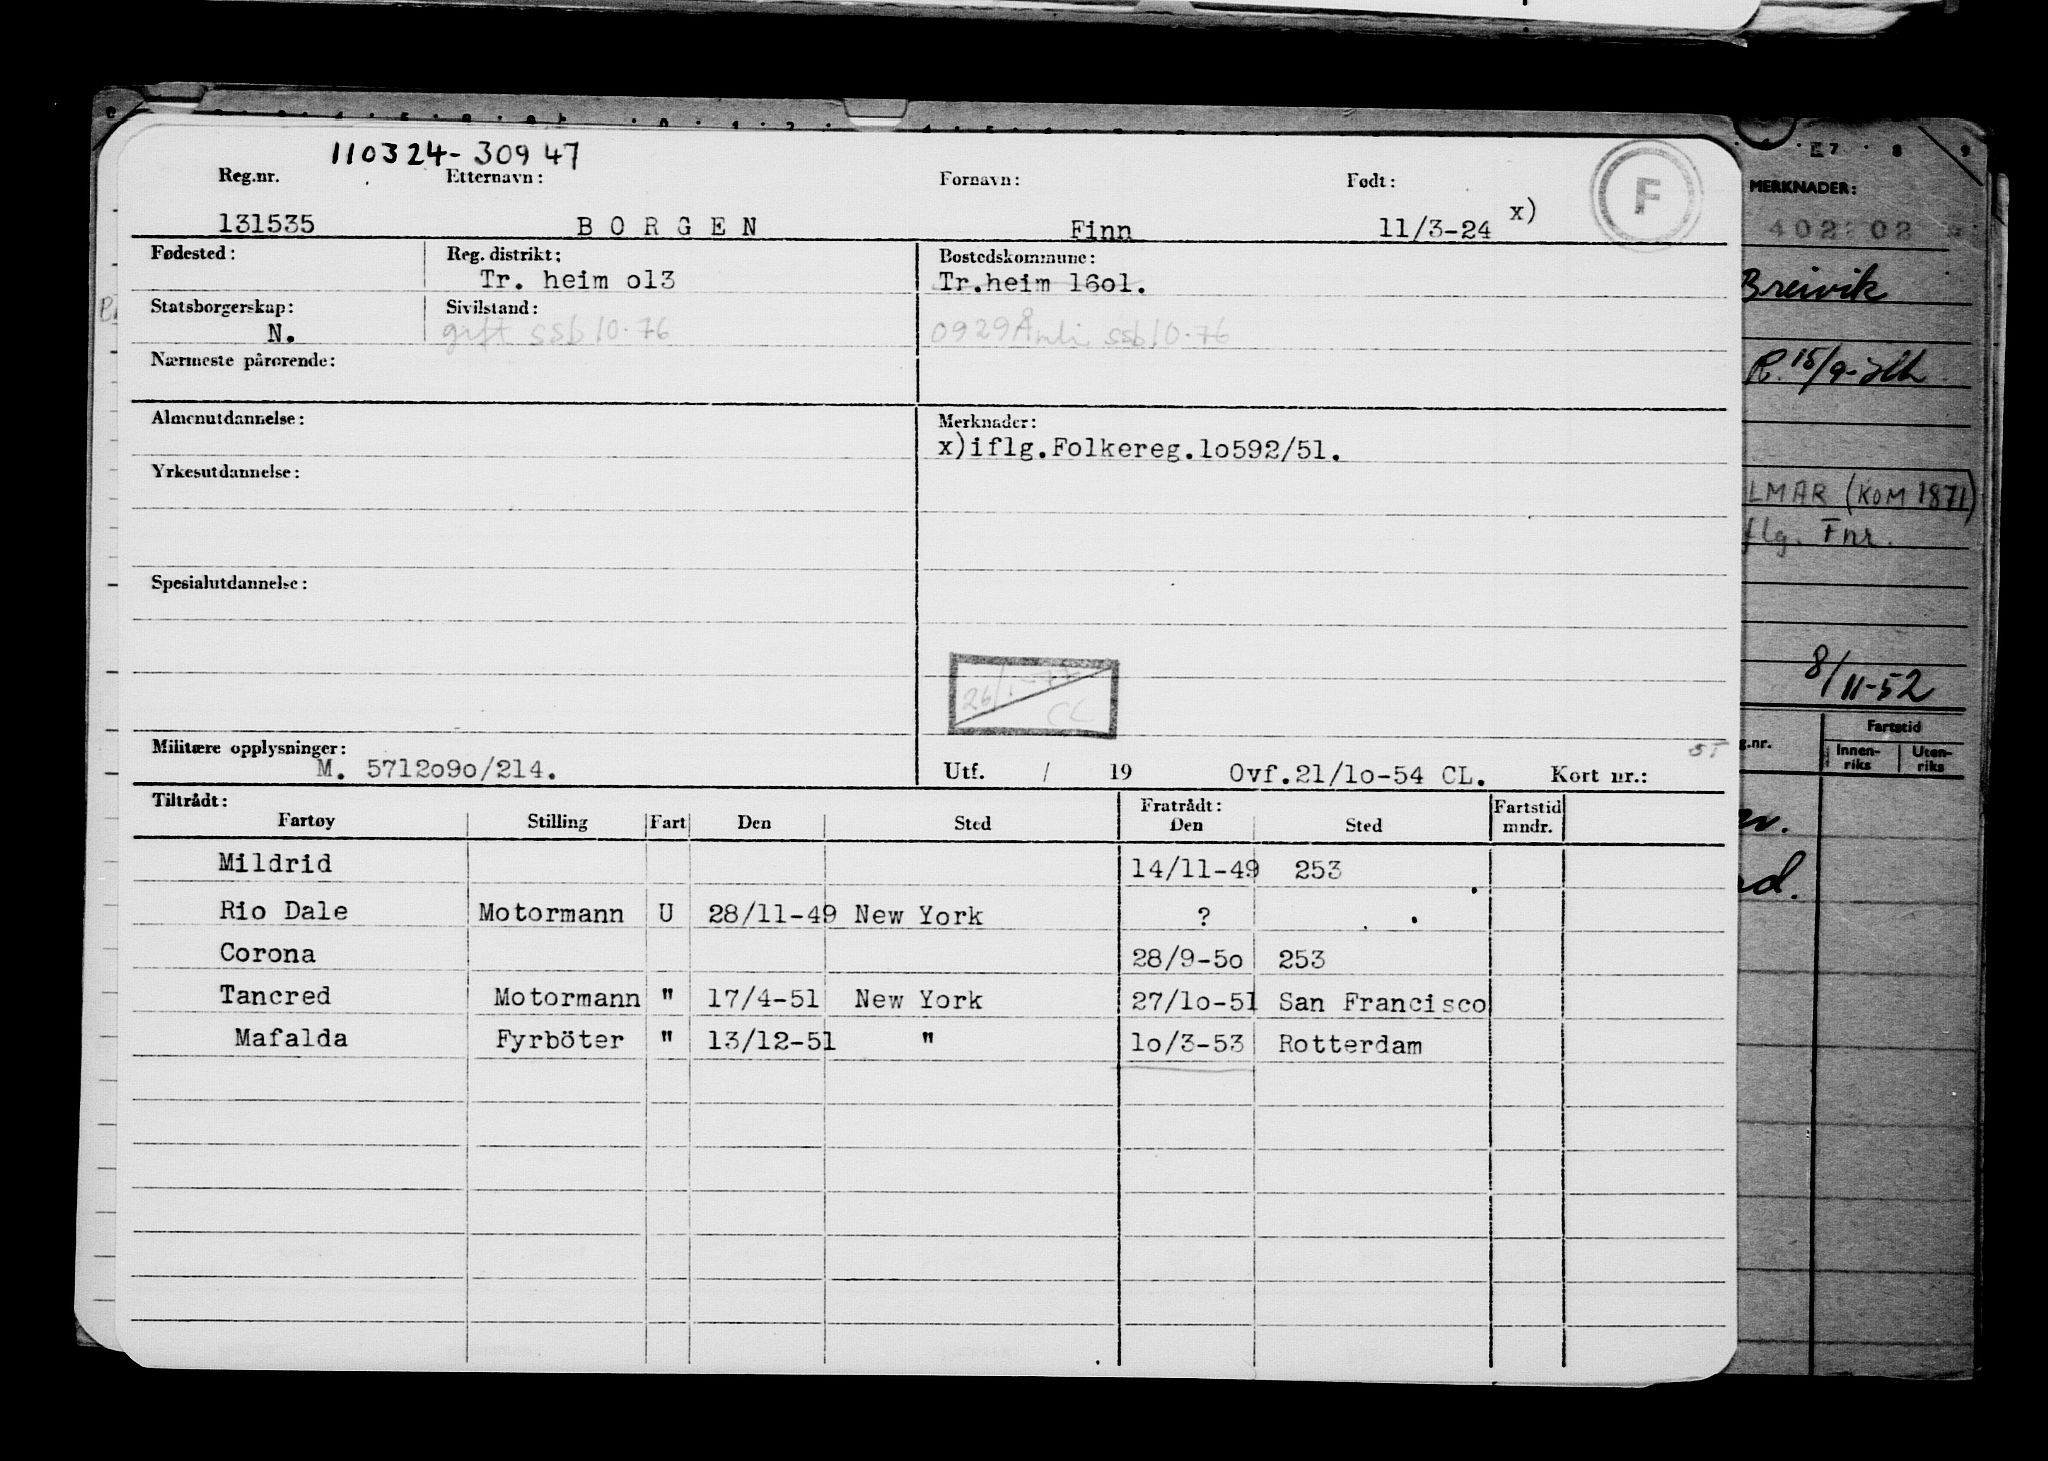 110324-30947
Reg.nr. Etternavn: Fornavn: Født:
131535 BORGEN Finn 11/3-24 x)
F
Fødested: Reg. distrikt: Bostedskommune:
Tr. heim o13 Tr.heim 16o1.
Statsborgerskap: Sivilstand:
N. gift ssb 10.76 0929 Åmli ssb 10.76
Nærmeste pårørende:
Almenutdannelse: Merknader:
x)iflg.Folkereg.1o592/51.
Yrkesutdannelse:
Spesialutdannelse:
CL
Militære opplysninger:
M. 5712o9o/214. Utf. / 19 Ovf.21/1o-54 CL. Kort nr.:
Tiltrådt: Fratrådt: Fartstid
Fartøy Stilling Fart Den Sted Den Sted mndr.
Mildrid 14/11-49 253
Rio Dale Motormann U 28/11-49 New York ?
Corona 28/9-5o 253
Tancred Motormann " 17/4-51 New York 27/1o-51 San Francisco
Mafalda Fyrböter " 13/12-51 " 1o/3-53 Rotterdam
7 8 9
MERKNADER:
Breivik
LMAR (KOM 1871)
flg. Fnr.
8/11-52
g.nr. Fartstid
Innen-riks Uten-riks